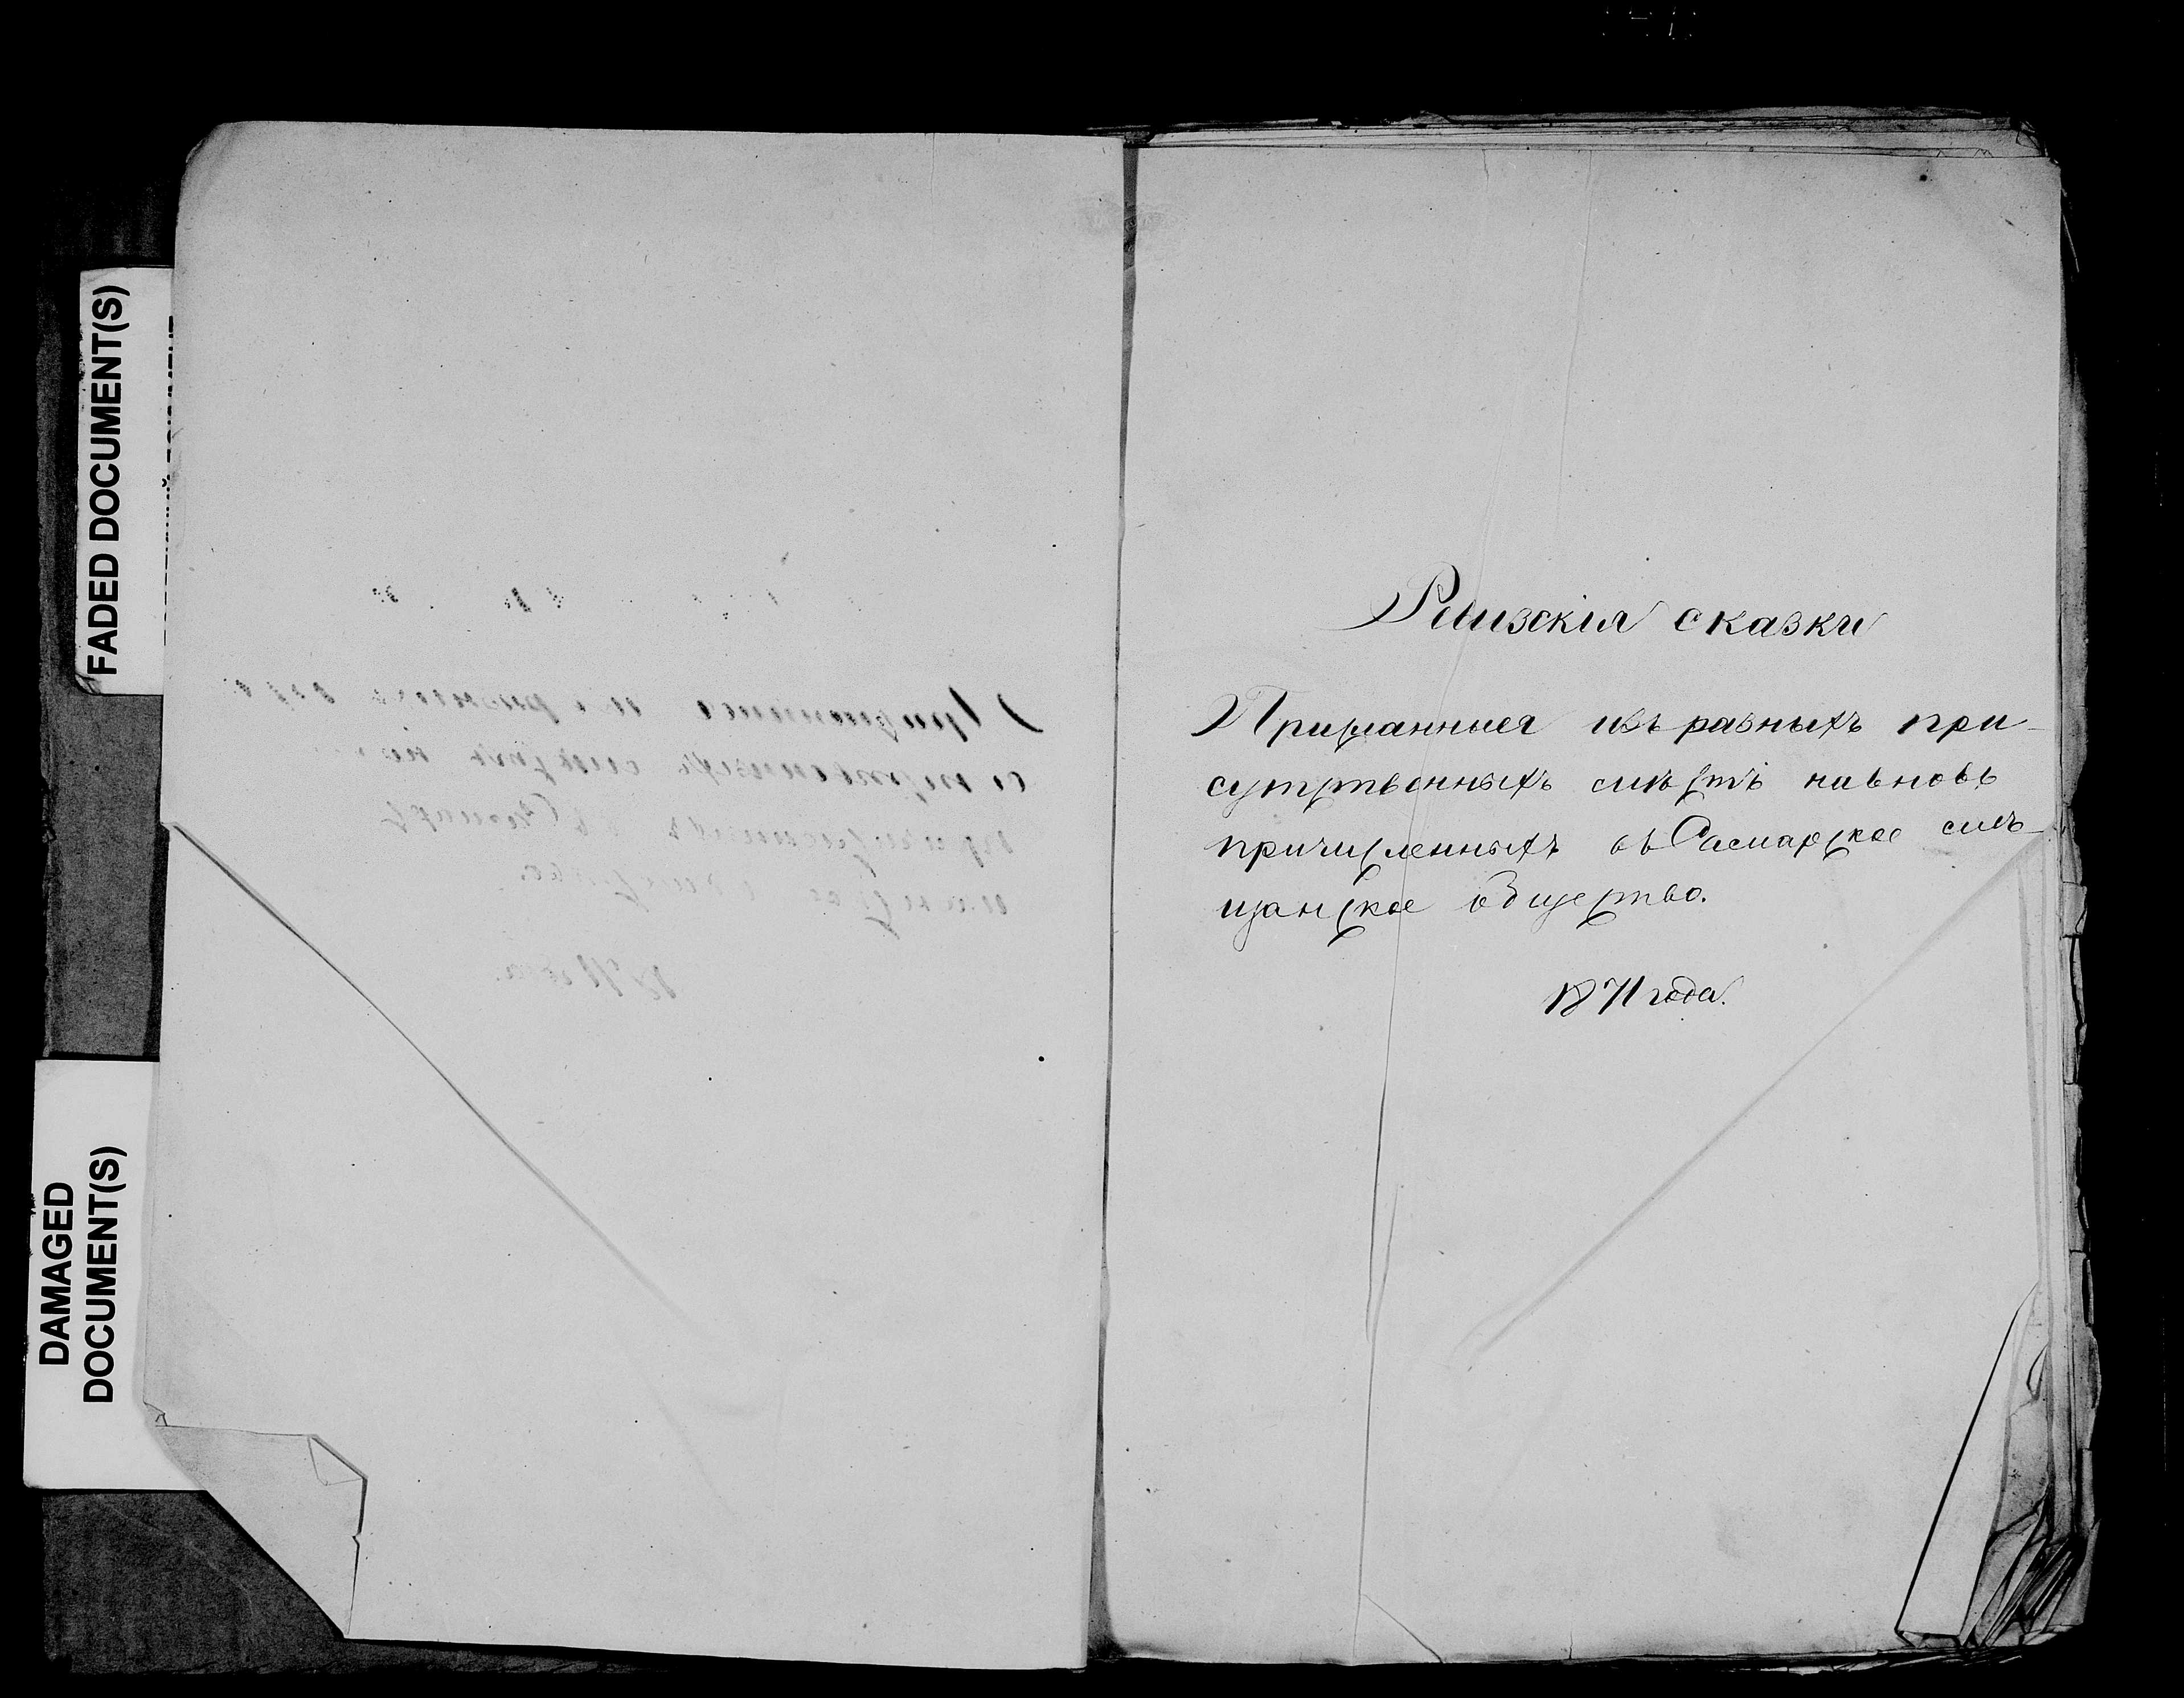 FADED DOCUMENT(S)
DAMAGED
DOCUMENT(S)
Ревизскія сказки
Присланныя изъ разныхъ при-
сутственныхъ мѣстъ навновь
причисленныхъ въ Самарское мѣ-
щанское общество.
1871 года.